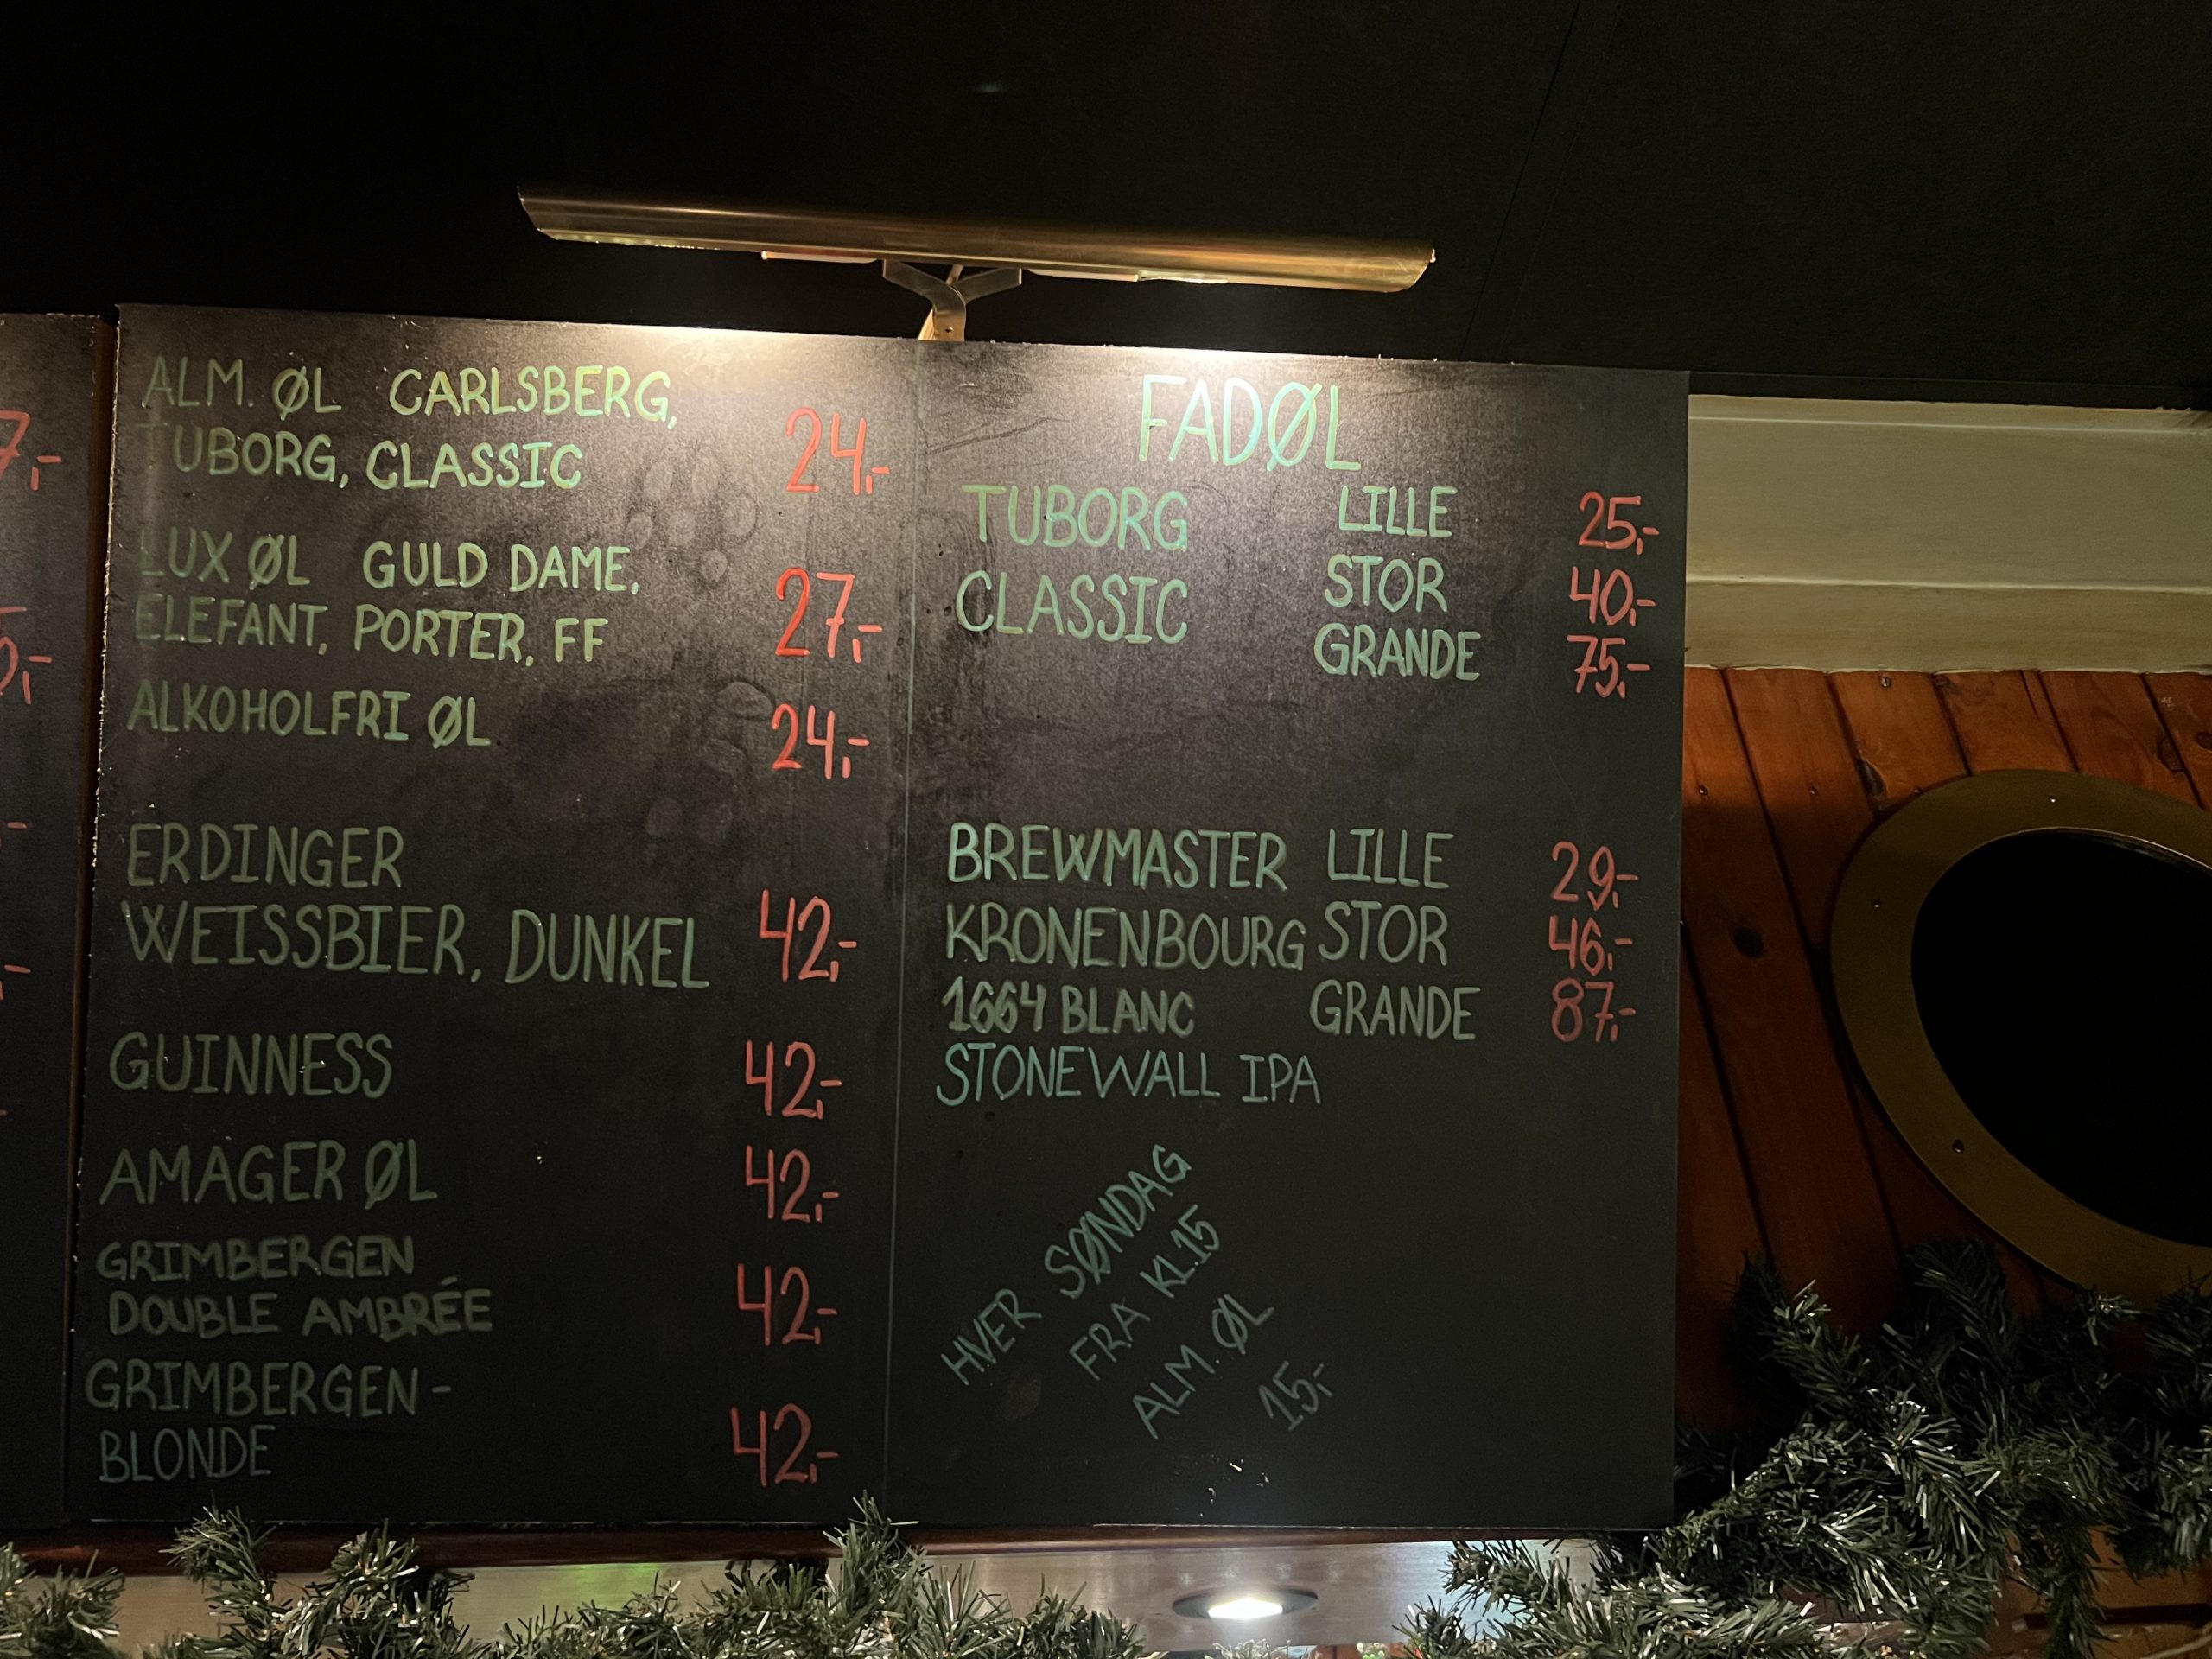 7,-
5,-
ALM. ØL CARLSBERG,
TUBORG, CLASSIC 24,-
LUX ØL GULD DAME,
ELEFANT, PORTER, FF 27,-
ALKOHOLFRI ØL 24,-
ERDINGER
WEISSBIER, DUNKEL 42,-
GUINNESS 42,-
AMAGER ØL 42,-
GRIMBERGEN
DOUBLE AMBRÉE 42,-
GRIMBERGEN-
BLONDE 42,-
FADØL
TUBORG LILLE 25,-
CLASSIC STOR 40,-
GRANDE 75,-
BREWMASTER LILLE 29,-
KRONENBOURG STOR 46,-
1664 BLANC GRANDE 87,-
STONEWALL IPA
HVER SØNDAG
FRA KL.15
ALM. ØL
15,-